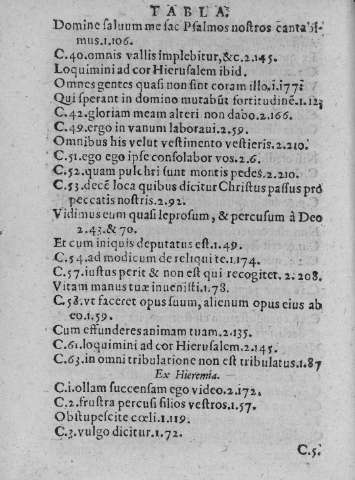 TABLA.
Domine saluum me fac Psalmos nostros cantabi-
mus.1.106.
C.40.omnis vallis implebitur,&c.2.145.
Loquimini ad cor Hierusalem ibid.
Omnes gentes quasi non sint coram illo.1.177.
Qui sperant in domino mutabūt fortitudinē.1.123
C.42.gloriam meam alteri non dabo.2.166.
C.49.ergo in vanum laboraui.2.59.
Omnibus his velut vestimento vestieris.2.210.
C.51.ego ego ipse consolabor vos.2.6.
C.52.quam pulchri sunt montis pedes.2.210.
C.53.decē loca quibus dicitur Christus passus pro
peccatis nostris.2.92.
Vidimus eum quasi leprosum, & percusum à Deo
2.43.& 70.
Et cum iniquis deputatus est.1.49.
C.54.ad modicum de reliqui te.1.174.
C.57.iustus perit & non est qui recogitet. 2. 208.
Vitam manus tuæ inuenisti.1.78.
C.58.vt faceret opus suum, alienum opus eius ab
eo.1.59.
Cum effunderes animam tuam.2.135.
C.61.loquimini ad cor Hierusalem.2.145.
C.63.in omni tribulatione non est tribulatus.1.87
Ex Hieremia.
C.1.ollam succensam ego video.2.172.
C.2.frustra percusi filios vestros.1.57.
Obstupescite cœli.1.119.
C.3.vulgo dicitur.1.72.
C.5.